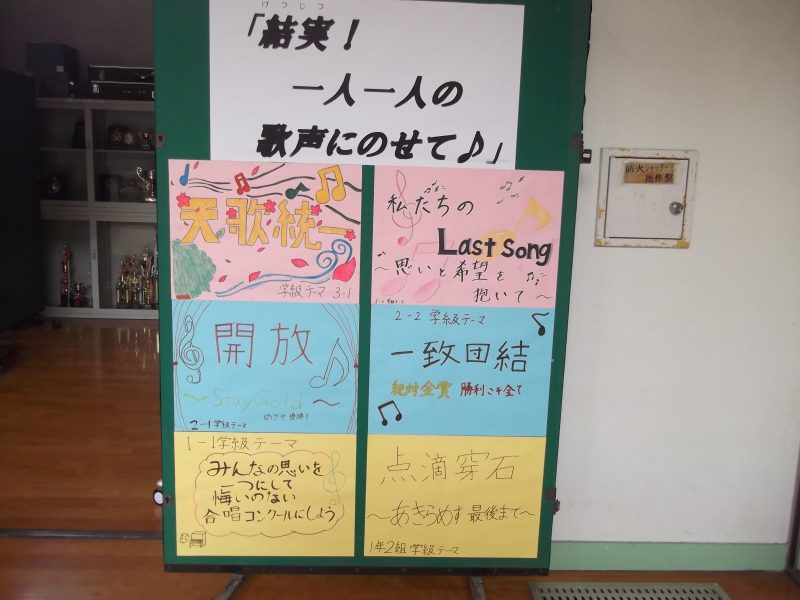 けつじつ
「結実！
一人一人の
歌声にのせて♪」
天歌統一
学級テーマ 3-1
私たちの
Last song
～思いと希望を
抱いて～
開放
～StayGold～
めざせ優勝！
2-1学級テーマ
2-2 学級テーマ
一致団結
絶対金賞 勝利こそ全て
1-1学級テーマ
みんなの思いを
一つにして
悔いのない
合唱コンクールにしよう
点滴穿石
～あきらめず最後まで～
1年2組 学級テーマ
防火シャッター
操作盤